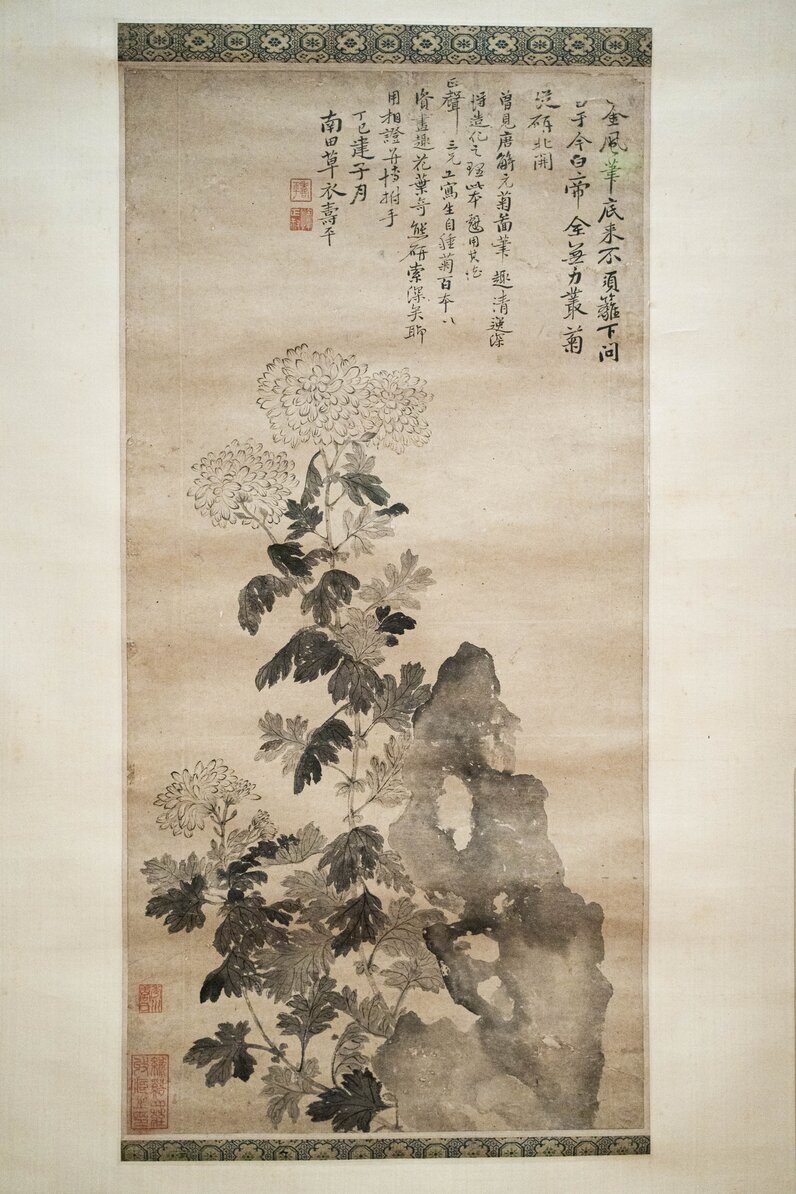 金風筆底来不須籬下問
于今白帝全無力叢菊
從研北開
曾見唐解元菊圖筆趣清逸深
得造化之理此本戲用其法
正聲三兄工寫生自種菊百本以
資畫趣花葉奇態研索深矣聊
用相證并博拊手
丁巳建子月
南田草衣壽平